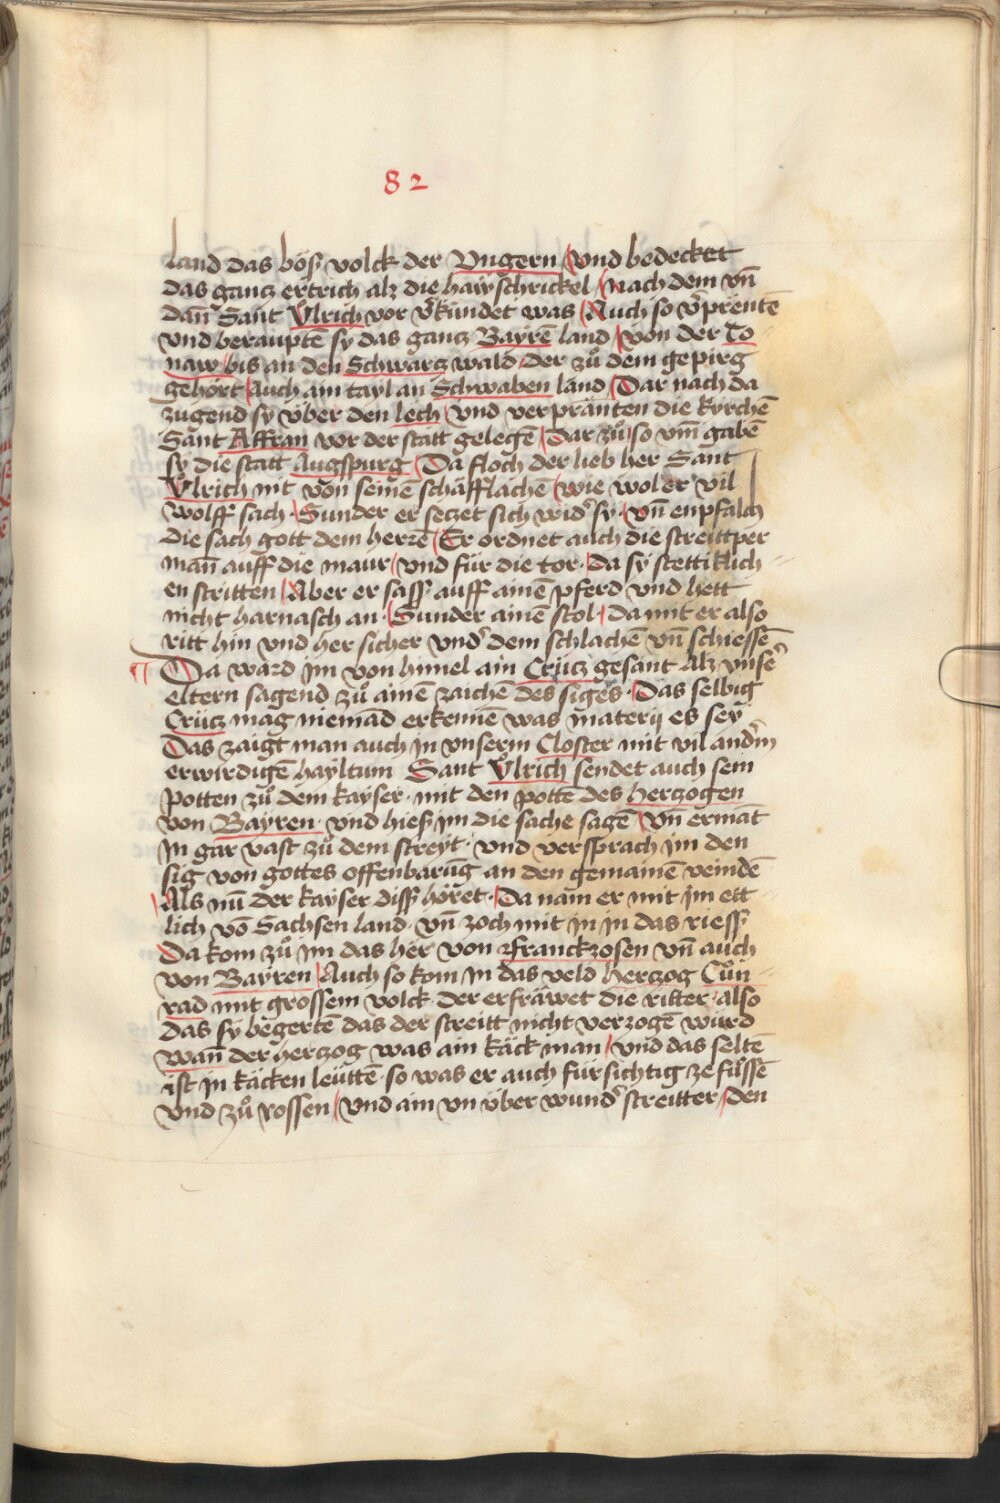 82
land das böß volck der Vngern / vnd bedecket
das gancz ertrich alz die haẅschrickel / nach dem vn̄
dan̄ Sant Vͦlrich vor v̓kündet was / Auch so v̓prentē
vnd berauptē sy das gancz Bayrē land / von der To
naw / bis an den Schwarcz wald / der zuͦ dem gepirg
gehört / Auch ain tayl an Schwaben land / Dar nach da
zugend sy v̈ber den lech / vnd verpränten die kyrchē
Sant Affran vor der statt gelegē / Dar zuͦ so vm̄ gabē
sy die statt Augspurg / Da floch der lieb her Sant
Vͦlrich nit von seinē schäfflachē / wie wol er vil
wolff sach · Sunder er seczet sich wid̓ sy · vn̄ enpfalch
die sach gott dem herrē / Er ordnet auch die streittper
man̄ auff die maur / vnd für die tor · Da sy stettiklich
en stritten / Aber er sass auff ainē pferd vnd hett
nicht harnasch an · Sunder ainē stol / da mit er also
ritt hin vnd her sicher vnd̓ dem schlachē vn̄ schiessē
¶ Da ward im von himel ain Crücz gesant alz vnse᷑
eltern sagend zuͦ ainē zaichē des siges · Das selbig
Crücz mag niemād erkennē was materij es sey
Das zaigt man auch in vnserm Closter mit vil and̓m
erwirdigē hayltum Sant Vͦlrich sendet auch sein
potten zuͦ dem kayser · mit den pottē des herczogen
von Bayren · vnd hieß im die sache sagē / vn̄ ermāt
in gar vast zuͦ dem streyt · vnd versprach im den
sig von gottes offenbarūg an den gemainē veindē
Als nū der kayser diss höret · Da nam er mit im ett
lich vō Sachsen land · vn̄ zoch mit in in das riess
Da kom zuͦ im das her von Franckzosen vn̄ auch
von Bayren / Auch so kom in das veld herczog Cuͦn
rad mit grossem volck · der erfräwet die ritter · also
das sy begertē das der streitt nicht verzogē würd
wan̄ der herczog was ain käck man / vnd das seltē
ist in käcken leüttē · so was er auch fürsichtig ze fuͤssē
vnd zuͦ rossen / vnd ain vn v̈ber wund̓ streitter / den